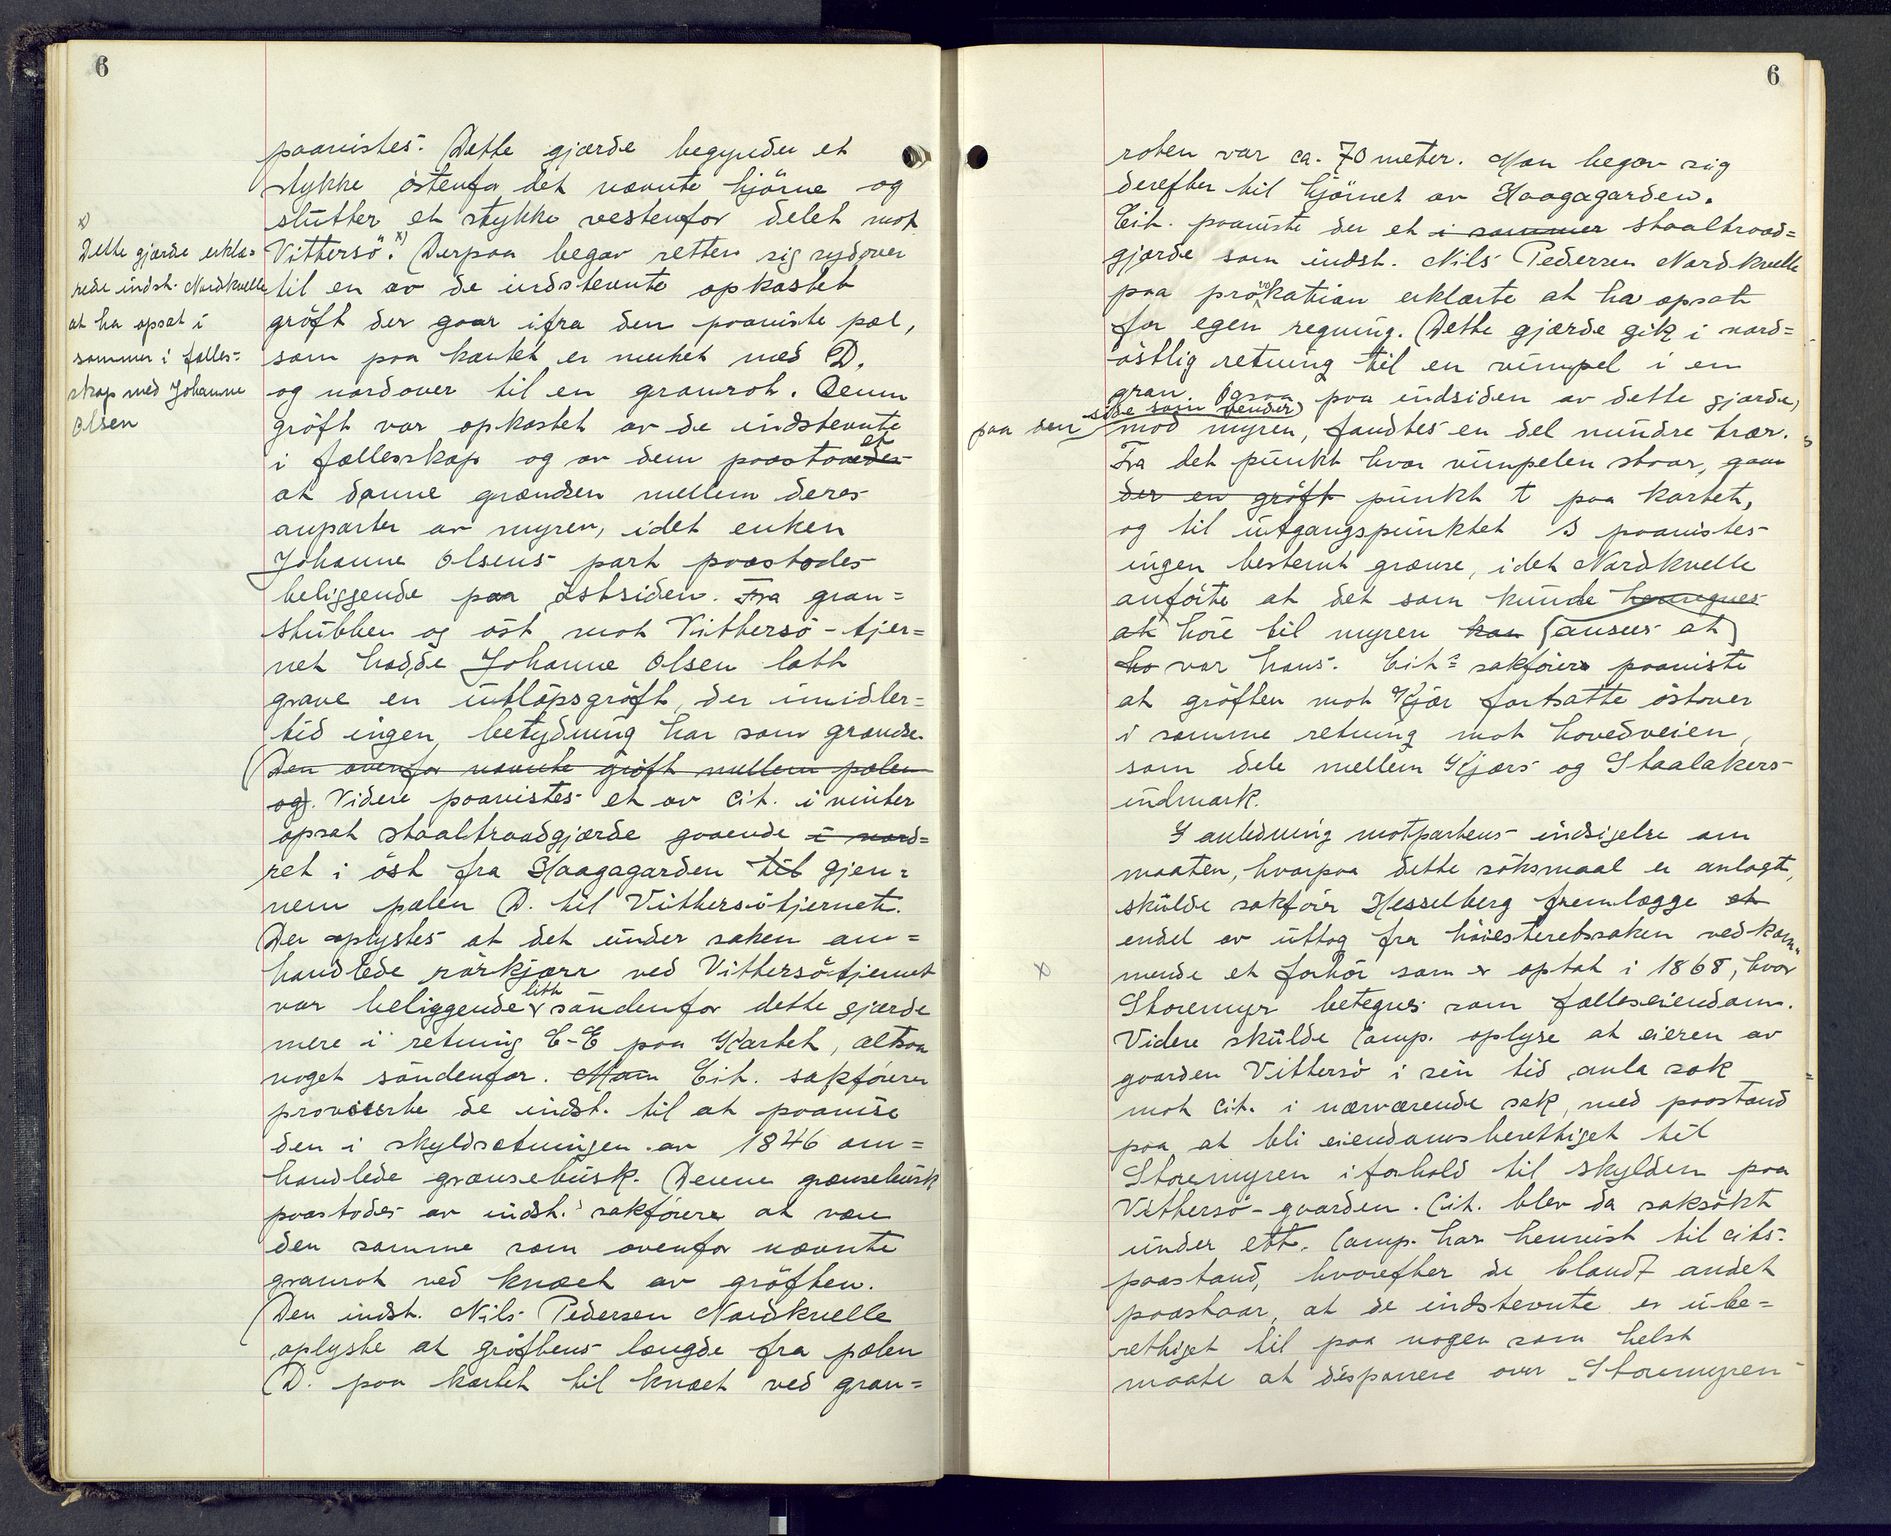 6
paavistes. Dette gjærde begynder et
stykke östenfor det nævnte hjörne og
slutter et stykke vestenfor delet mot
Vittersö". x) Derpaa begav retten sig sydover
til en av de indstevnte opkastet
gröft der gaar ifra den paaviste pæl,
som paa kartet er merket med D,
og nordover til en granrot. Denne
gröft var opkastet av de indstevnte
i fællesskap og av dem paastaaedes et
at danne grændsen mellem deres
anparter av myren, idet enken
Johanne Olsens part paastodes
beliggende paa östsiden. Fra gran-
stubben og öst mot Vittersö-tjer-
net hadde Johanne Olsen latt
grave en utlöpsgröft, der imidler-
tid ingen betydning har som grændse.
(Den ovenfor nævnte gröft mellem pælen
og). Videre paavistes et av cit. i vinter
opsat staaltraadgjærde gaaende i nord-
ret i öst fra Haagagarden til gjen-
nem pælen D. til Vittersötjernet.
Der oplystes at det under saken om-
handlede rörkjærr ved Vittersötjernet
var beliggende litt söndenfor dette gjærde
mere i retning C-E paa Kartet, altsaa
noget söndenfor. Man Cit. sakförer
provoserte de indst. til at paavise
den i skyldsetningen av 1846 om-
handlede grænsebusk. Denne grænsebusk
paastodes av indst.s sakförere at være
den samme som ovenfor nævnte
granrot ved knæet av gröften.
Den indst. Nils Pedersen Nordkvelle
oplyste at gröftens længde fra pælen
D. paa kartet til knæet ved gran-
x)
Dette gjærde erklæ-
rede indst. Nordkvelle
at ha opsat i
sommer i fælles-
skap med Johanne
Olsen
6
roten var ca. 70 meter. Man begav sig
derefter til hjörnet av Haagagarden.
Cit. paaviste der et i sommer staaltraad-
gjærde som indst. Nils Pedersen Nordkvelle
paa provokation erklærte at ha opsat
for egen regning. Dette gjærde gik i nord-
östlig retning til en vimpel i en
gran. Ogsaa paa indsiden av dette gjærde,
paa den side som vender)
mod myren, fandtes en del mindre trær.
Fra det punkt hvor vimpelen staar, gaar
der en gröft punkt t paa kartet,
og til utgangspunktet S paavistes
ingen bestemt grænse, idet Nordkvelle
anförte at det som kunde henregnes
at höre til myren han (ansees at)
ho var hans. Cit.s sakförer paaviste
at gröften mot Kjær fortsatte östover
i samme retning mot hovedveien,
som dele mellem Kjærs og Staalakers
indmark.
I anledning motpartens indsigelse om
maaten, hvorpaa dette söksmaal er anlagt,
skulde sakförer Hesselberg fremlægge et
endel av uttog fra höiesteretssaken vedkom-
mende et forhör som er optat i 1868, hvor
x
Storemyr betegnes som fælleseiendom.
Videre skulde Comp. oplyse at eieren av
gaarden Vittersö i sin tid anla sak
mot cit. i nærværende sak, med paastand
paa at bli eiendomsberettiget til
Storemyren i forhold til skylden paa
Vittersö-gaarden. Cit. blev da saksökt
under ett. Comp. har henvist til cits.
paastand, hvorefter de blandt andet
paastaar, at de indstevnte er ube-
rettiget til paa nogen som helst
maate at disponere over "Storemyren"